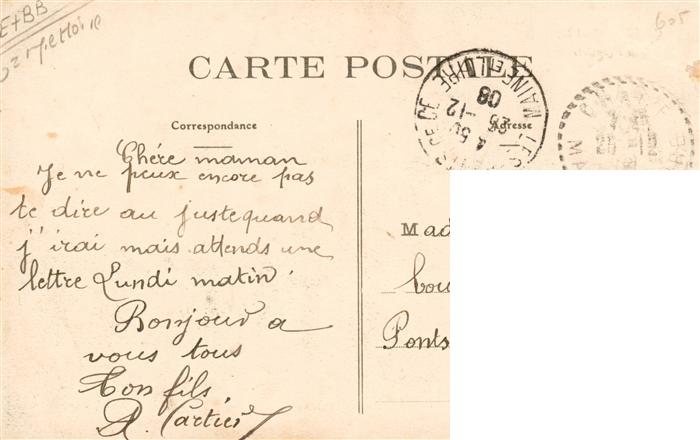 E+BB
605
CARTE POSTALE
MAINE ET LOIRE
4 50
25 -12
08
Correspondance
Adresse
Chére maman
Je ne peux encore pas
te dire au juste quand
j'irai mais attends une
lettre Lundi matin.
Bonjour a
vous tous
Ton fils
A. Cartier
Mad
Cou
Ponts